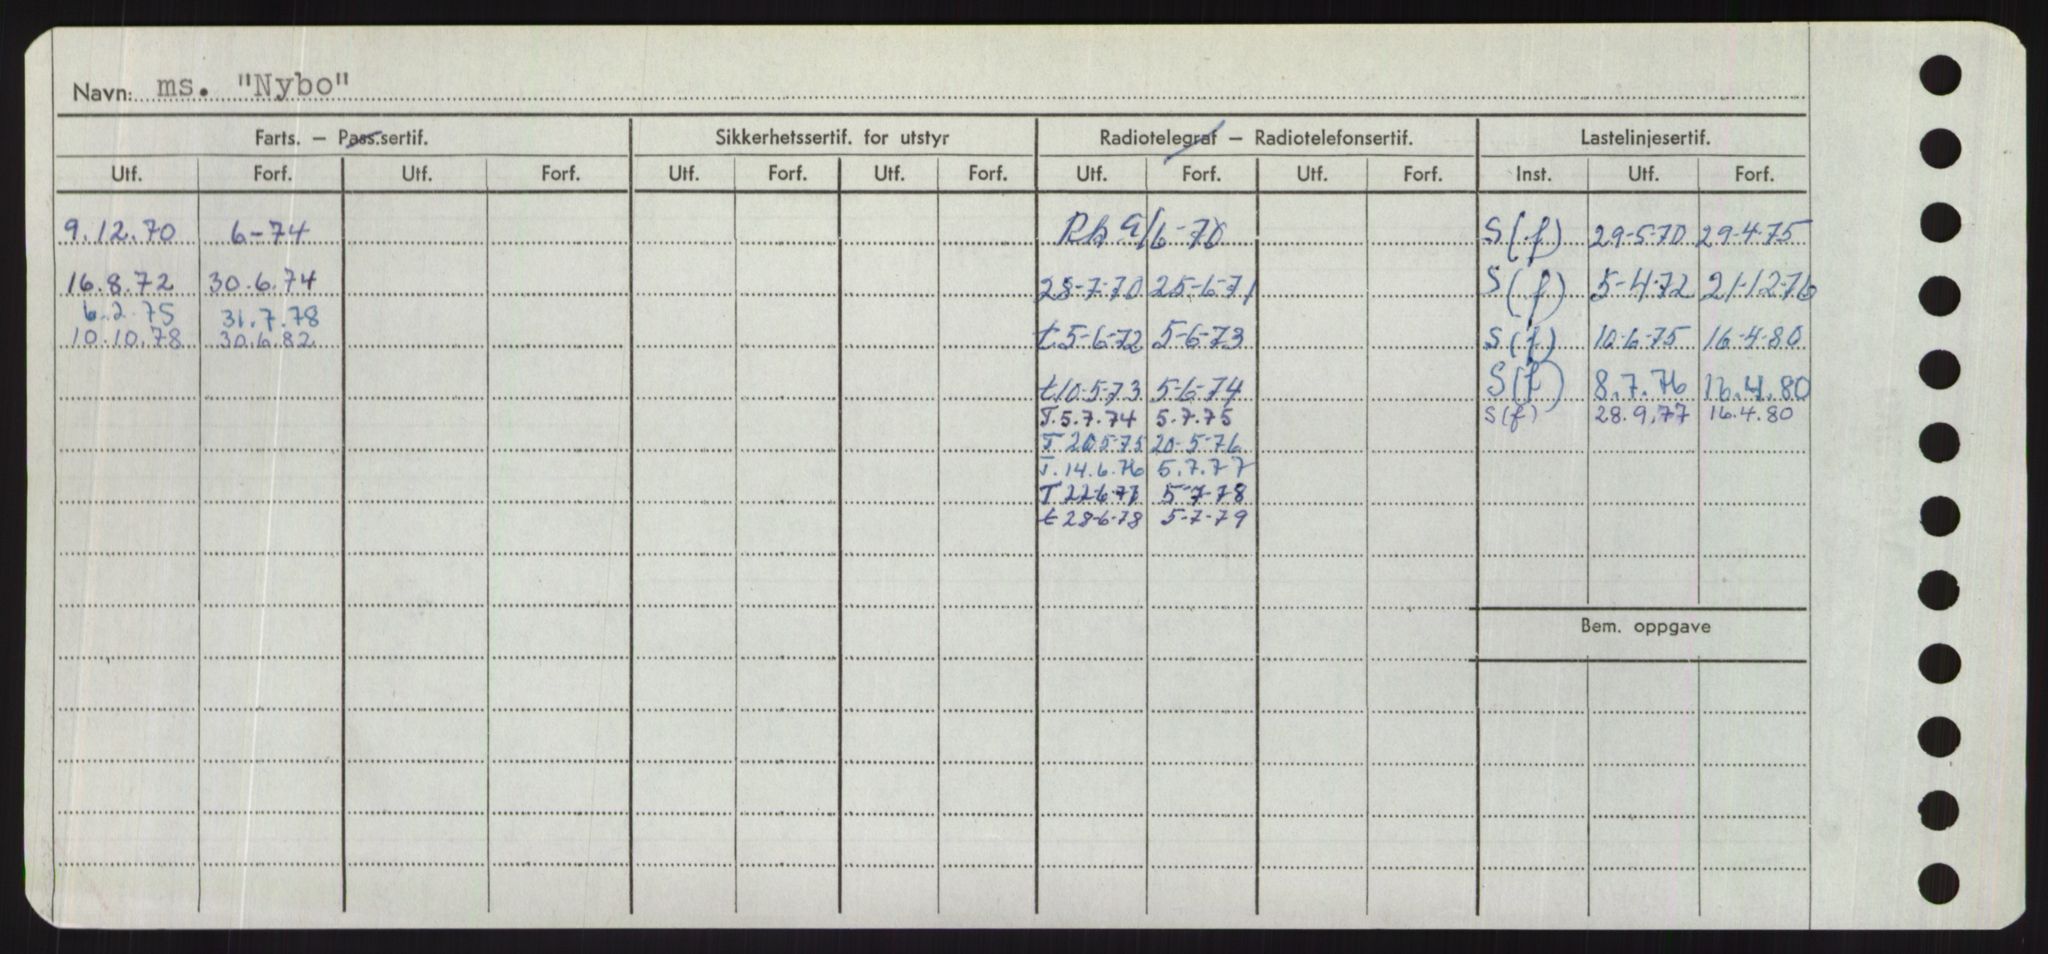 Navn: ms. "Nybo"
Farts. — Pass.sertif. Sikkerhetssertif. for utstyr Radiotelegraf — Radiotelefonsertif. Lastelinjesertif.
Utf. Forf. Utf. Forf. Utf. Forf. Utf. Forf. Utf. Forf. Utf. Forf. Inst. Utf. Forf.
9.12.70 6-74 9/6-70 S(f) 29-5-70 29-4-75
16.8.72 30.6.74 28-7-70 25-6-71 S(f) 5-4-72 21-12-76
6.2.75 31.7.78
10.10.78 30.6.82 t.5-6-72 5-6-73 S(f) 10-6-75 16-4-80
t10-5-73 5-6-74 S(f) 8.7.76 16.4.80
T.5.7.74 5.7.75 S(f) 28.9.77 16.4.80
T 20.5-75 20-5-76
T.14.6.76 5.7.77
T 22-6-77 5-7-78
t 28-6-78 5-7-79
Bem. oppgave